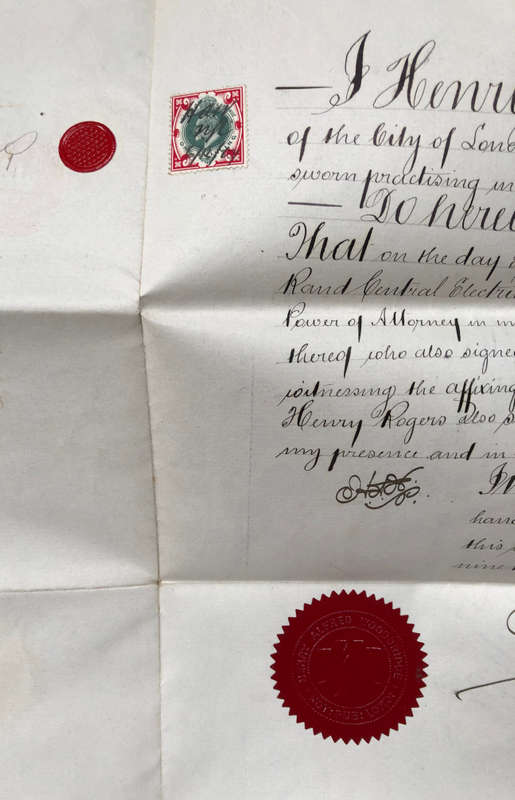 I Henr
of the City of Lond
sworn practising in
Do here
That on the day
Rand Central Electric
Power of Attorney in m
thereof who also signed
witnessing the affixing
Henry Rogers also s
my presence and in
In
han
this
nine
HENRY ALFRED WOODBRIDGE NOTARY PUBLIC